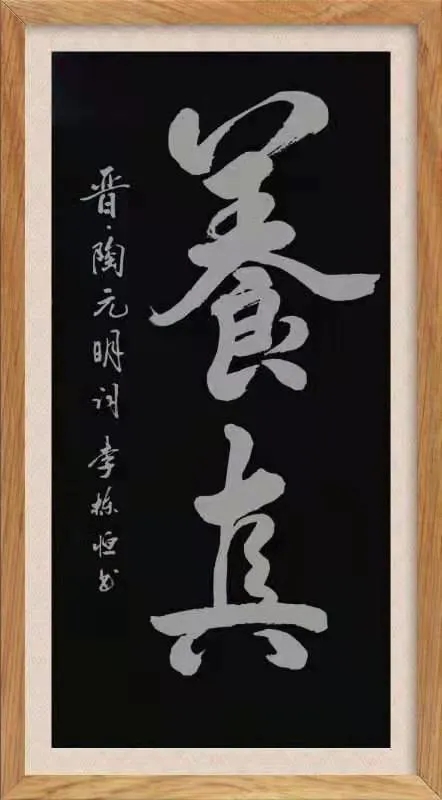 養真
晋·陶元明词 李栋恒书